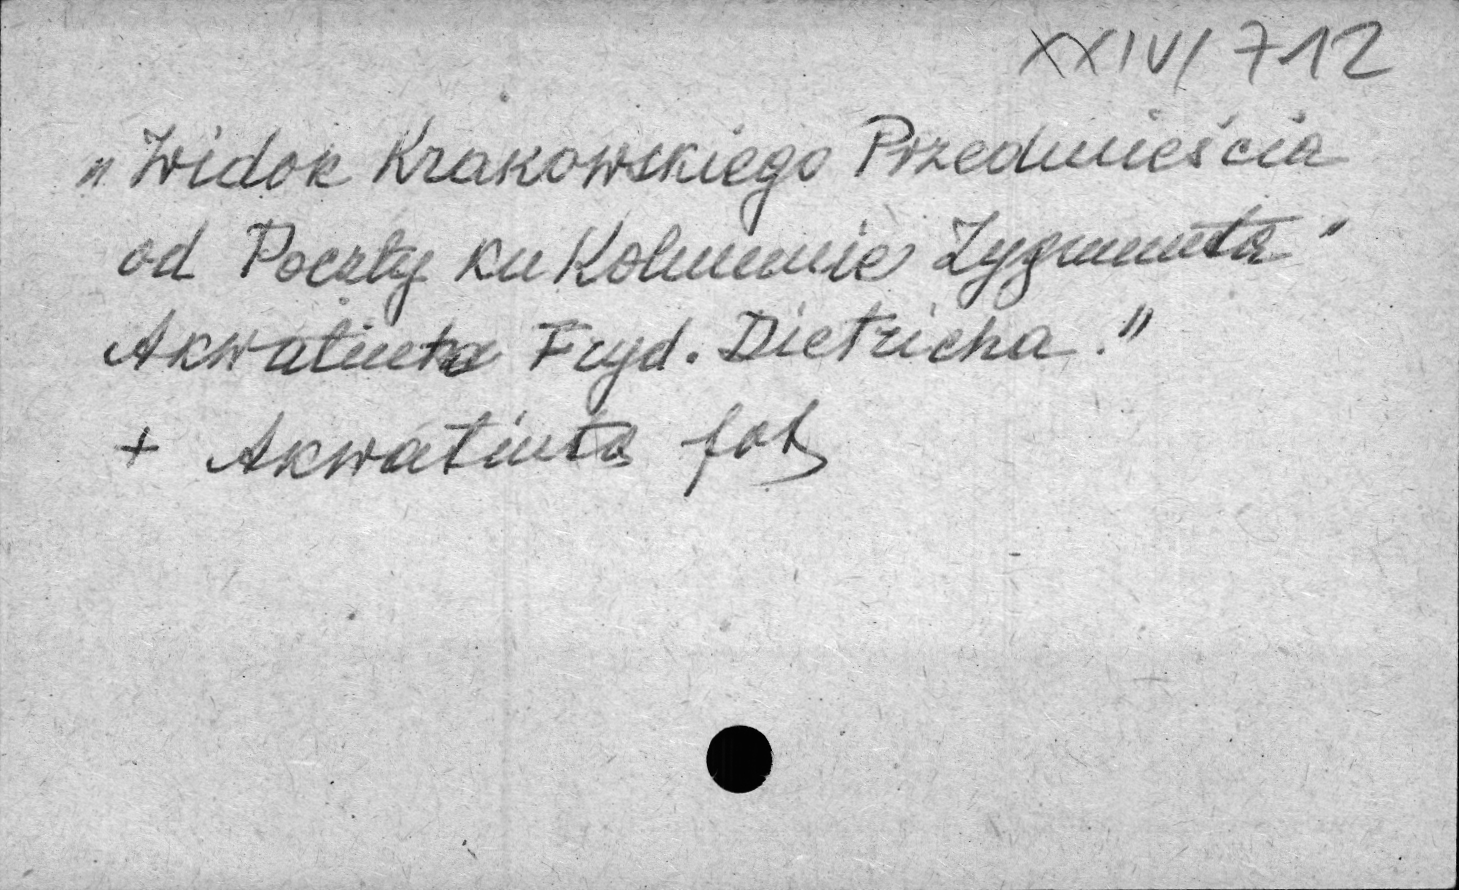 XXIV/712
„Widok Krakowskiego Przedmieścia
od Poczty ku Kolumnie Zygmunta"
Akwatinta Fryd. Dietricha."
+ Akwatinta fot